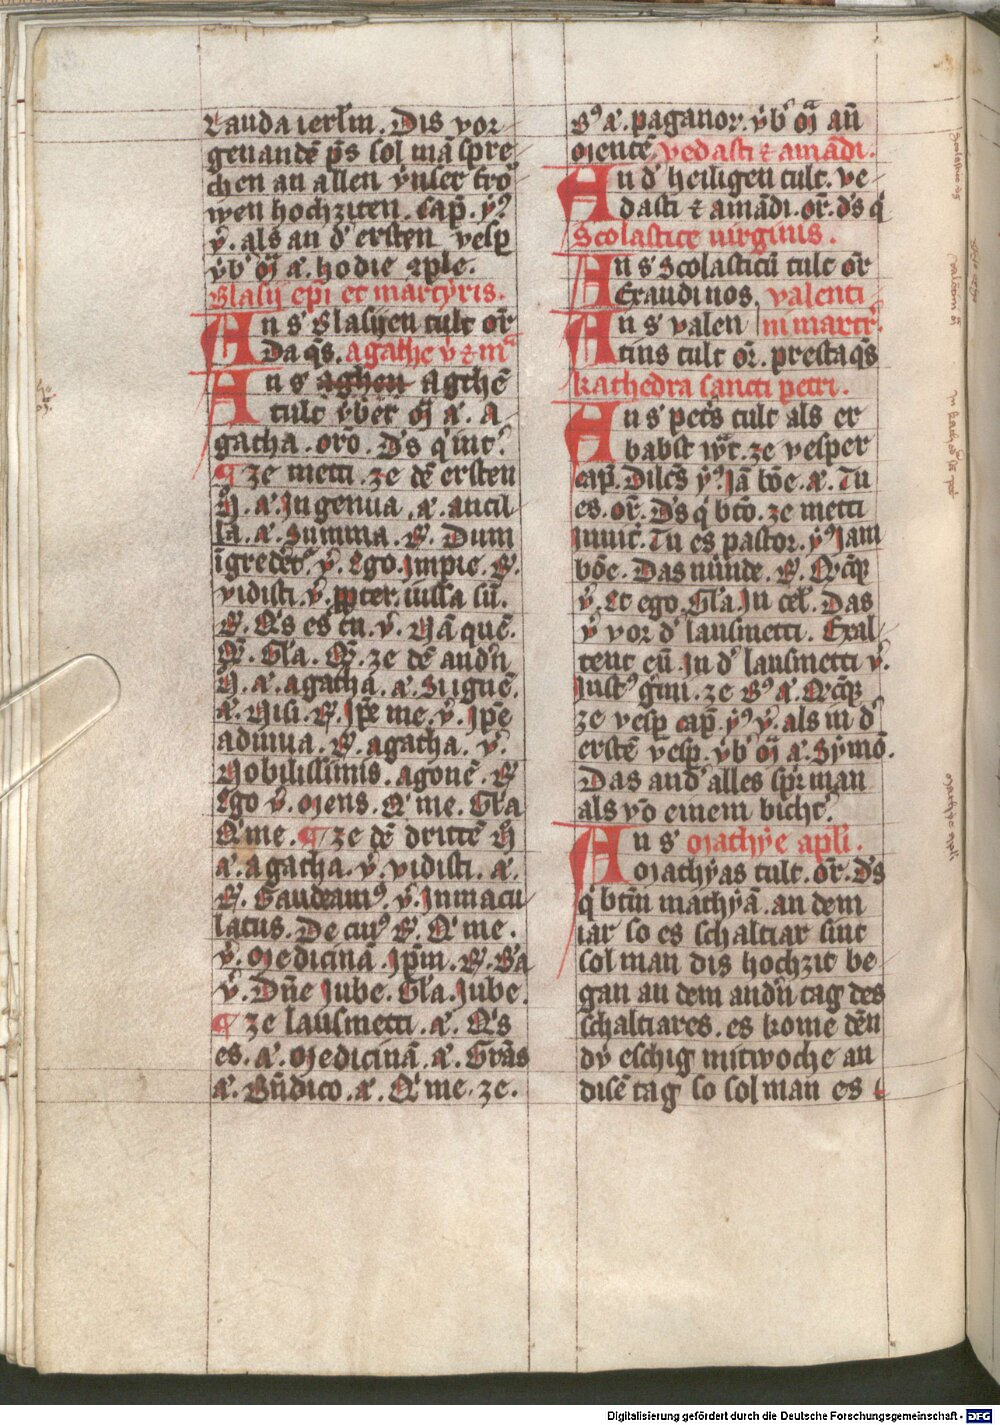 Lauda ierl̄m. Dis vor
genandē ps̄ sol mā spre
chen an allen v̓nser fro
wen hochziten. Cap̄. ꝟ᷒
ꝟ. als an d' ersten vesp̄
v̓b' M̄ a'. hodie 2ple.
Blasij ep̄i et martyris.
An s' Blasyen tult or̄
Da qs̄. agathe ꝟ ⁊ mr̄
An s' aghen Agthē
tult v̓ber M̄ a'. A
gatha. orō. Ds̄ q' int᷒
ze metti. ze dē ersten
N̄. a'. Ingenua. a'. ancil
la. a'. Summa. R'. Dum
īgredet᷒. ꝟ. Ego. Impie. R'.
vidisti. ꝟ. ꝓpter. iussa sū.
R'. Q's es tu. ꝟ. Nā quē.
R'. Gl'a. R'. ze dē and'n
N̄. a'. agatha. a'. Si ignē.
a'. Nisi. R'. Ip̄e me. ꝟ. Ip̄e
adiuua. R'. agatha. ꝟ.
Nobilissimis. agonē. R'
Ego ꝟ. Mens. Q' me. Gl'a
Q' me. ze dē drittē N̄
a'. agatha. ꝟ. vidisti. a'.
R'. Gaudeam᷒. ꝟ. Inmacu
latus. De cui᷒ R'. Q' me.
ꝟ. Medicinā. Ip̄m. R'. B'a
ꝟ. Dn̄e Iube. Gl'a. Iube.
ze lausmetti. a'. Q's
es. a'. Medicinā. a'. Grās
a'. Bn̄dico. a'. Q' me. ze.
B᷒ a'. paganor. v̓b' M̄ an̄
Mentē. vedasti ⁊ amādi.
An d' heiligen tult. ve
dasti ⁊ amādi. or̄. ds̄ q'
Scolastice uirginis.
An s' Scolasticū tult or̄
Exaudi nos. valenti
An s' valen ni martr᷒.
tins tult or̄. presta qs̄
kathedra sancti petri.
An s' pet̓s tult als er
babst wr̄t. ze vesper
Cap̄. Dilcs̄ ꝟ᷒ Iā bōe. a'. Tu
es. or̄. Ds̄ q' btō. ze metti
Inuit̄. Tu es pastor. ꝟ᷒ Iam
bōe. Das nūnde. R'. Q̄cq̄
ꝟ. Et ego. Gl'a. In cel'. Das
ꝟ vor d' lausmetti. Exal
tent eū. In d' lausmetti ꝟ.
Iust᷒ g'mi. ze B᷒ a'. Q̄cq̄
ze vesp̄ Cap̄. ꝟ᷒ ꝟ. als in d'
erstē vesp̄. v̓b' M̄ a'. Symō.
Das and' alles spr̄ man
als vō einem bicht᷒.
An s' Mathye apl̄i.
Mathyas tult. or̄. Ds̄
q' btm̄ mathyā. an dem
iar so es schaltiar sint
sol man dis hochzit be
gan an dem and'n tag des
schaltiares. es kome dēn
dy eschig mitwoche an
disē tag so sol man es
Digitalisierung gefördert durch die Deutsche Forschungsgemeinschaft - DFG